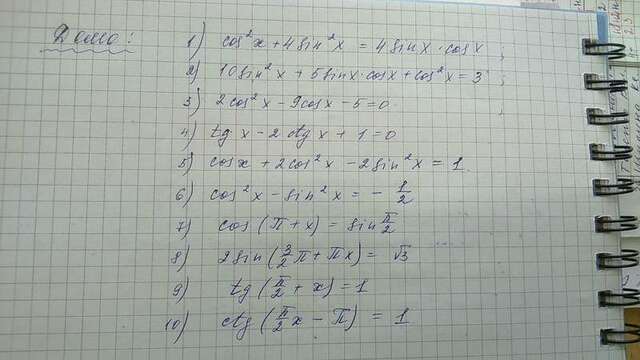 Дома:
1) cos²x + 4sin²x = 4sinx·cosx ;
2) 10sin²x + 5sinx·cosx + cos²x = 3 ;
3) 2cos²x - 9cosx - 5 = 0 ;
4) tg x - 2ctg x + 1 = 0
5) cosx + 2cos²x - 2sin²x = 1
6) cos²x - sin²x = - 1/2
7) cos(π + x) = sin π/2
8) 2sin(3/2 π + πx) = √3
9) tg(π/2 + x) = 1
10) ctg(π/2 x - π) = 1